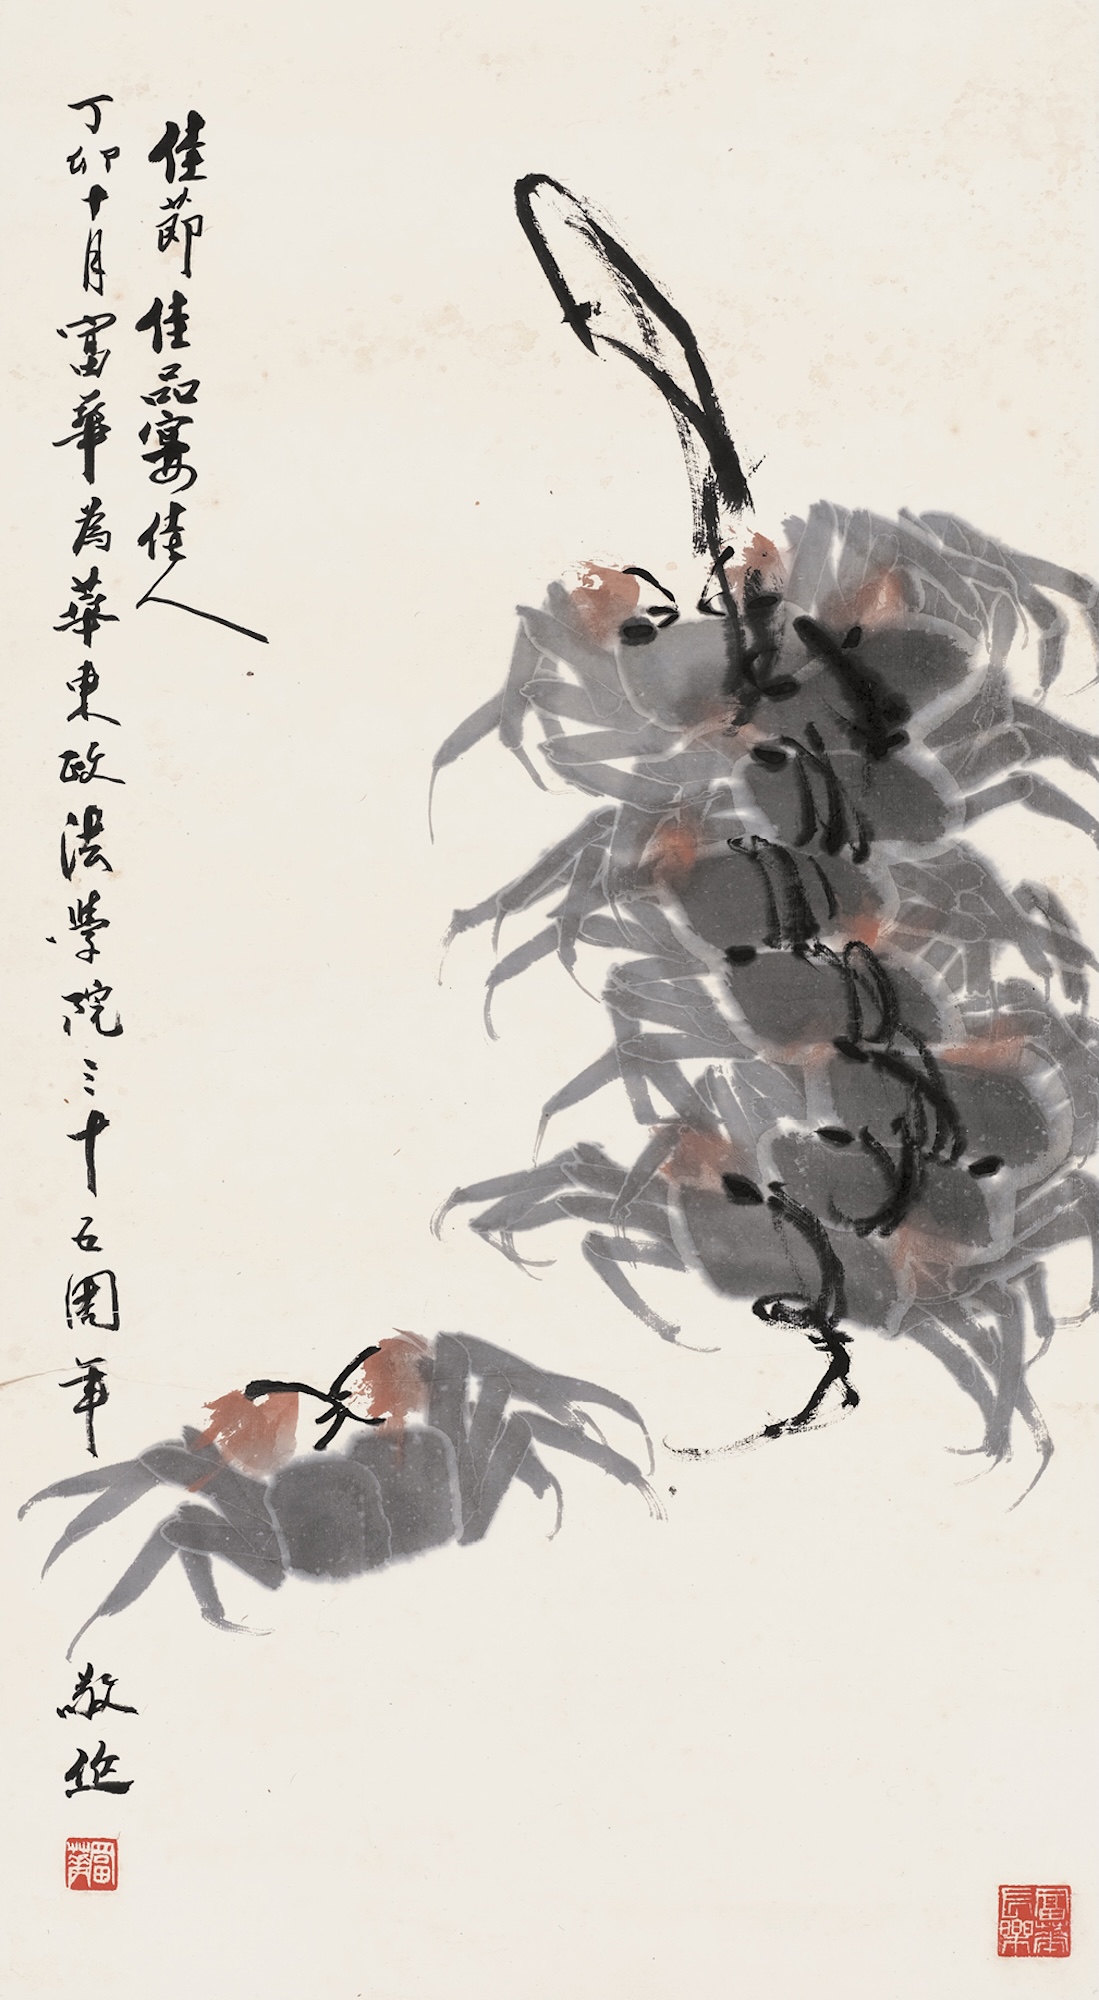 佳節佳品宴佳人
丁卯十月富華為華東政法學院三十五周年
敬作
富華
富華長樂